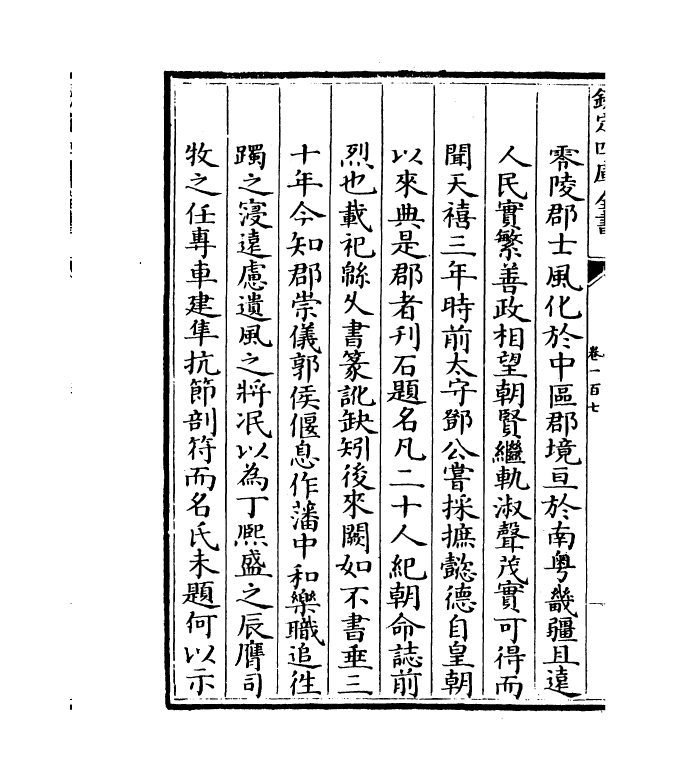 欽定四庫全書
卷一百七
零陵郡士風化於中區郡境亘於南粤畿疆且遠
人民實繁善政相望朝賢繼軌淑聲茂實可得而
聞天禧三年時前太守鄧公嘗採摭懿德自皇朝
以來典是郡者刊石題名凡二十人紀朝命誌前
烈也載祀緜乆書篆訛缺矧後來闕如不書垂三
十年今知郡崇儀郭侯偃息作藩中和樂職追徃
躅之寖遠慮遺風之將冺以為丁熈盛之辰膺司
牧之任專車建隼抗節剖符而名氏未題何以示